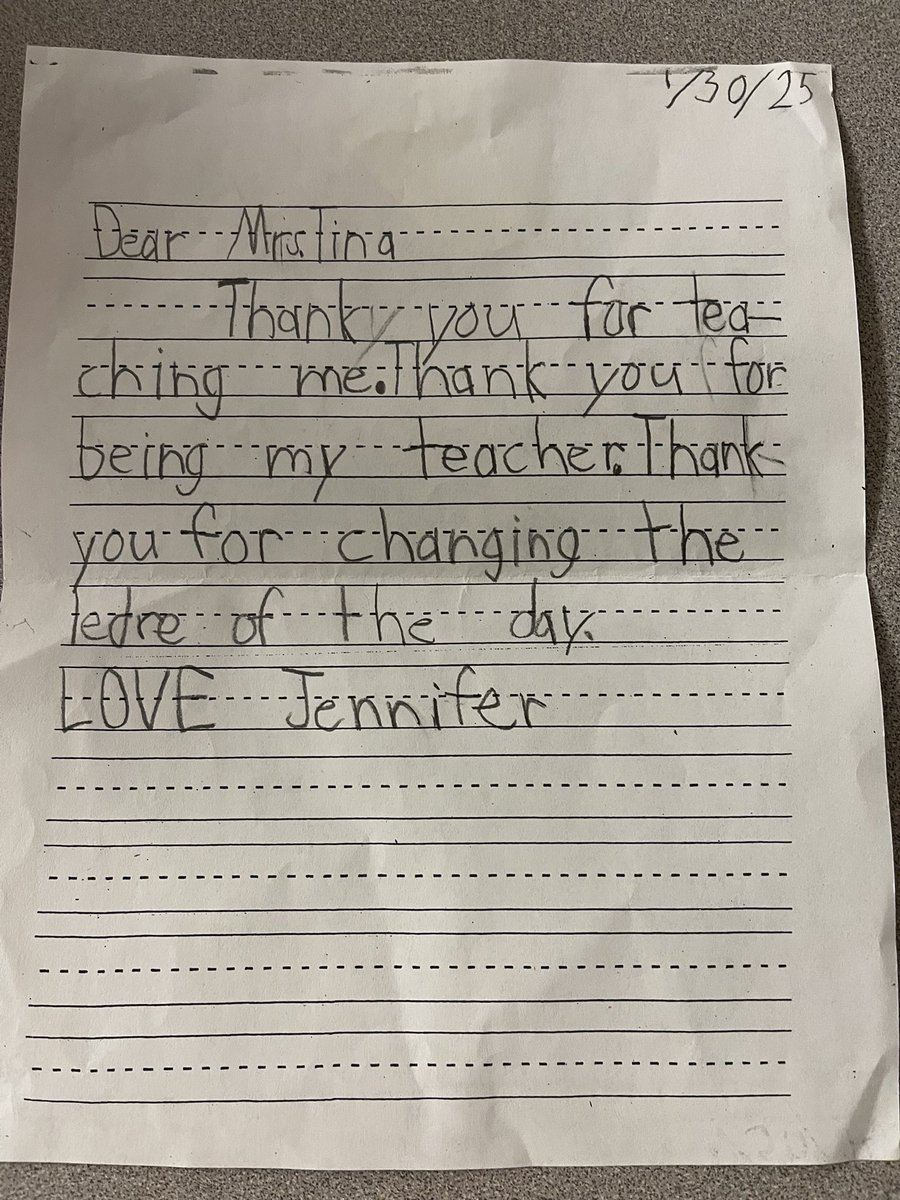 1/30/25
Dear Mrs. Tina
Thank you for tea-
ching me. Thank you for
being my teacher. Thank
you for changing the
ledre of the day.
LOVE Jennifer